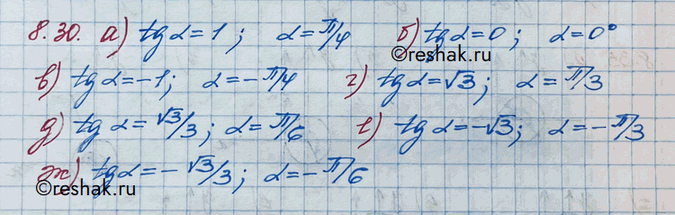 8.30. а) tg α=1; α=π/4 б) tg α=0; α=0°
©reshak.ru
в) tg α=-1; α=-π/4 г) tg α=√3; α=π/3
д) tg α=√3/3; α=π/6 е) tg α=-√3; α=-π/3
ж) tg α=-√3/3; α=-π/6
©reshak.ru